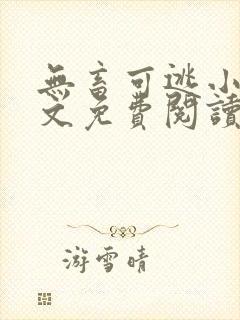 無畜可逃小
文免費閱讀
游雪晴